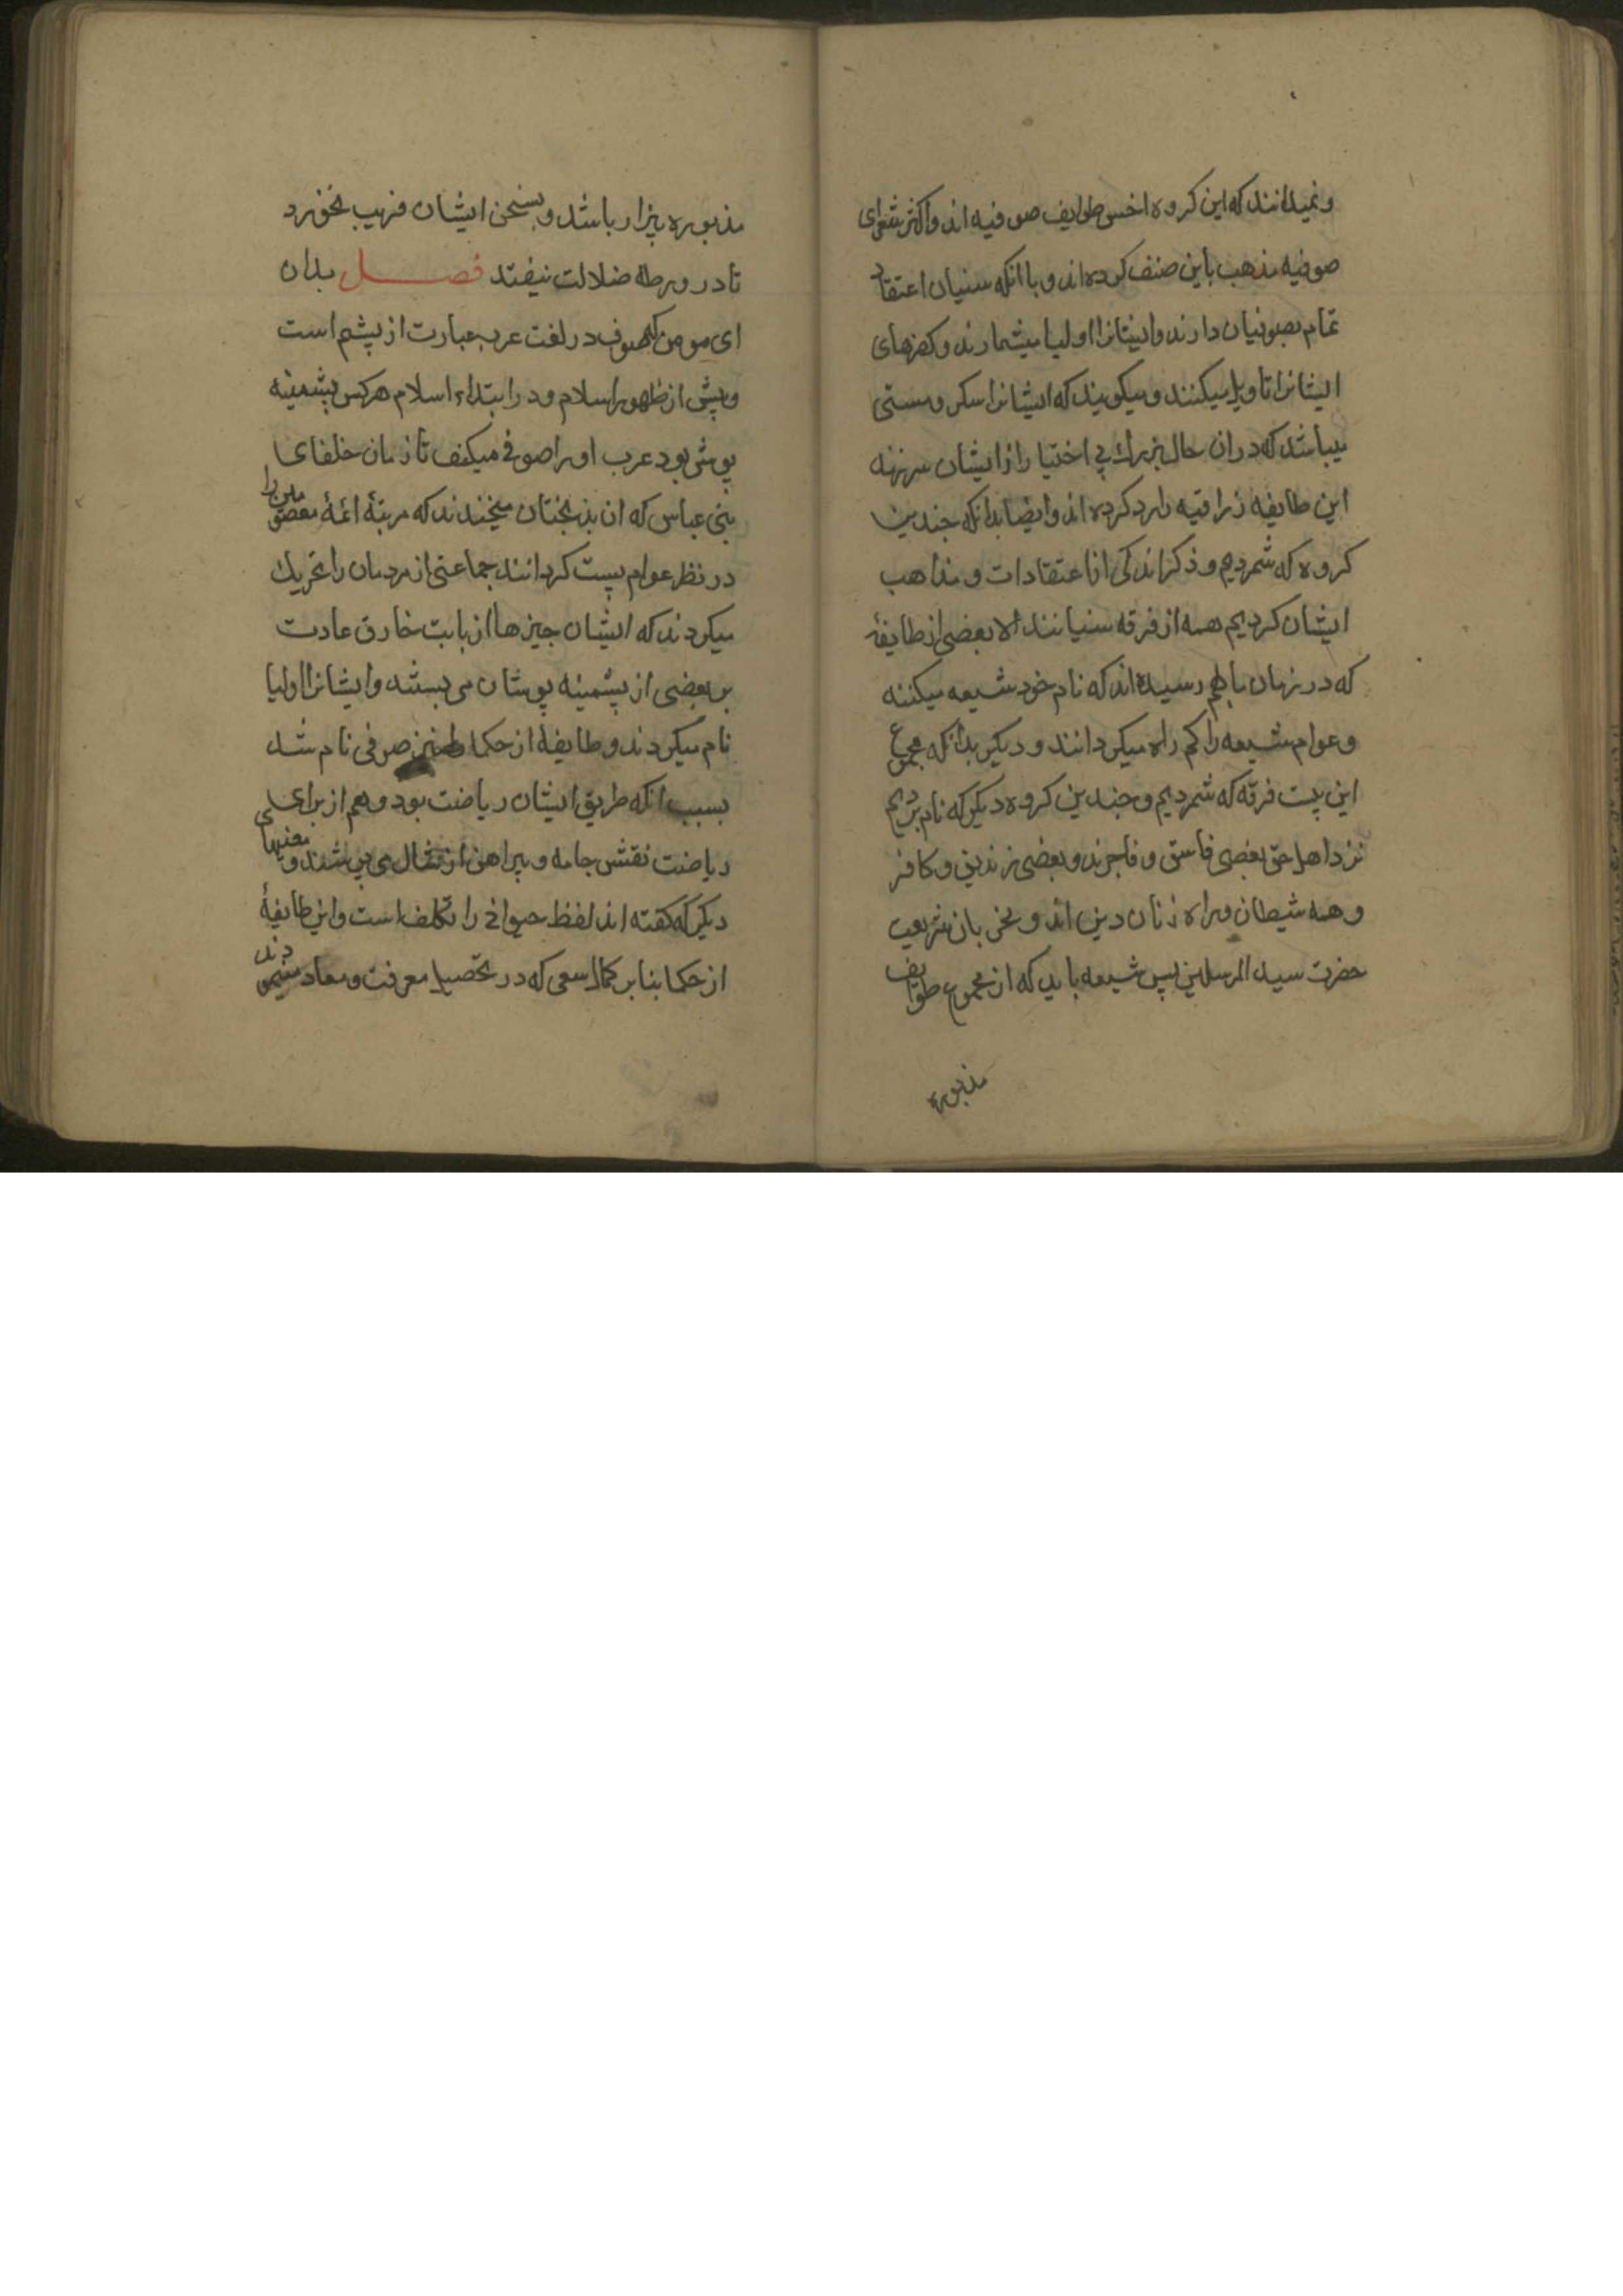 و نمیدانند که این کروه اخس طوایف صوفیه اند و اکثر شعرای
صوفیه مذهب باین صنف کرده اند و با انکه سنیان اعتقاد
تمام بصوفیان دارند و ایشانرا اولیا میشمارند و کفرهای
ایشانرا تاویل میکنند و میکویند که ایشانرا سکر و مستی
میباشد که در ان حال بی اختیار از ایشان سر زند
این طایفه زراقیه را رد کرده اند و ایضا بدانکه جندین
کروه که شمردیم و ذکر اندکی از اعتقادات و مذاهب
ایشان کردیم همه از فرقه سنیانند الا بعضی از طایفهٔ
که در زمان ما بهم رسیده اند که نام خود شیعه میکنند
و عوام شیعه را کم راه میکردانند و دیکر بدانکه مجموع
این بیست فرقه که شمردیم و جندین کروه دیکر که نام بردیم
نزد اهل حق بعضی فاسق و فاجرند و بعضی زندیق و کافر
و همه شیطان و راه زنان دین اند و مخربان شریعت
حضرت سید المرسلین پس شیعه باید که از مجموع طوایف
مذبوره
مذبوره بیزار باشد و بسخن ایشان فریب نخورد
تا در ورطهٔ ضلالت نیفتد فصل بدان
ای مومن که صوف در لغت عرب عبارت از پشم است
و پیش از ظهور اسلام و در ابتداء اسلام هرکس پشمینه
پوش بود عرب او را صوفی میکفت تا زمان خلفای
بنی عباس که ان بدبختان میخندند که مرتبهٔ ائمهٔ معصومین را
در نظر عوام پست کردانند جماعتی از مردمان را تحریک
میکردند که ایشان جیزها از بابت خارق عادت
بر بعضی از پشمینه پوشان می بستند و ایشانرا اولیا
نام میکردند و طایفهٔ از حکما را نیز صوفی نام شد
بسبب انکه طریق ایشان ریاضت بود و هم از برای
ریاضت نفس جامه و پیراهن از شال می پوشیدند و معنیهای
دیکر که کفته اند لفظ را تکلف است و این طایفهٔ
از حکما بنا بر کمال سعی که در تحصیل معرفت و معاد مینمودند